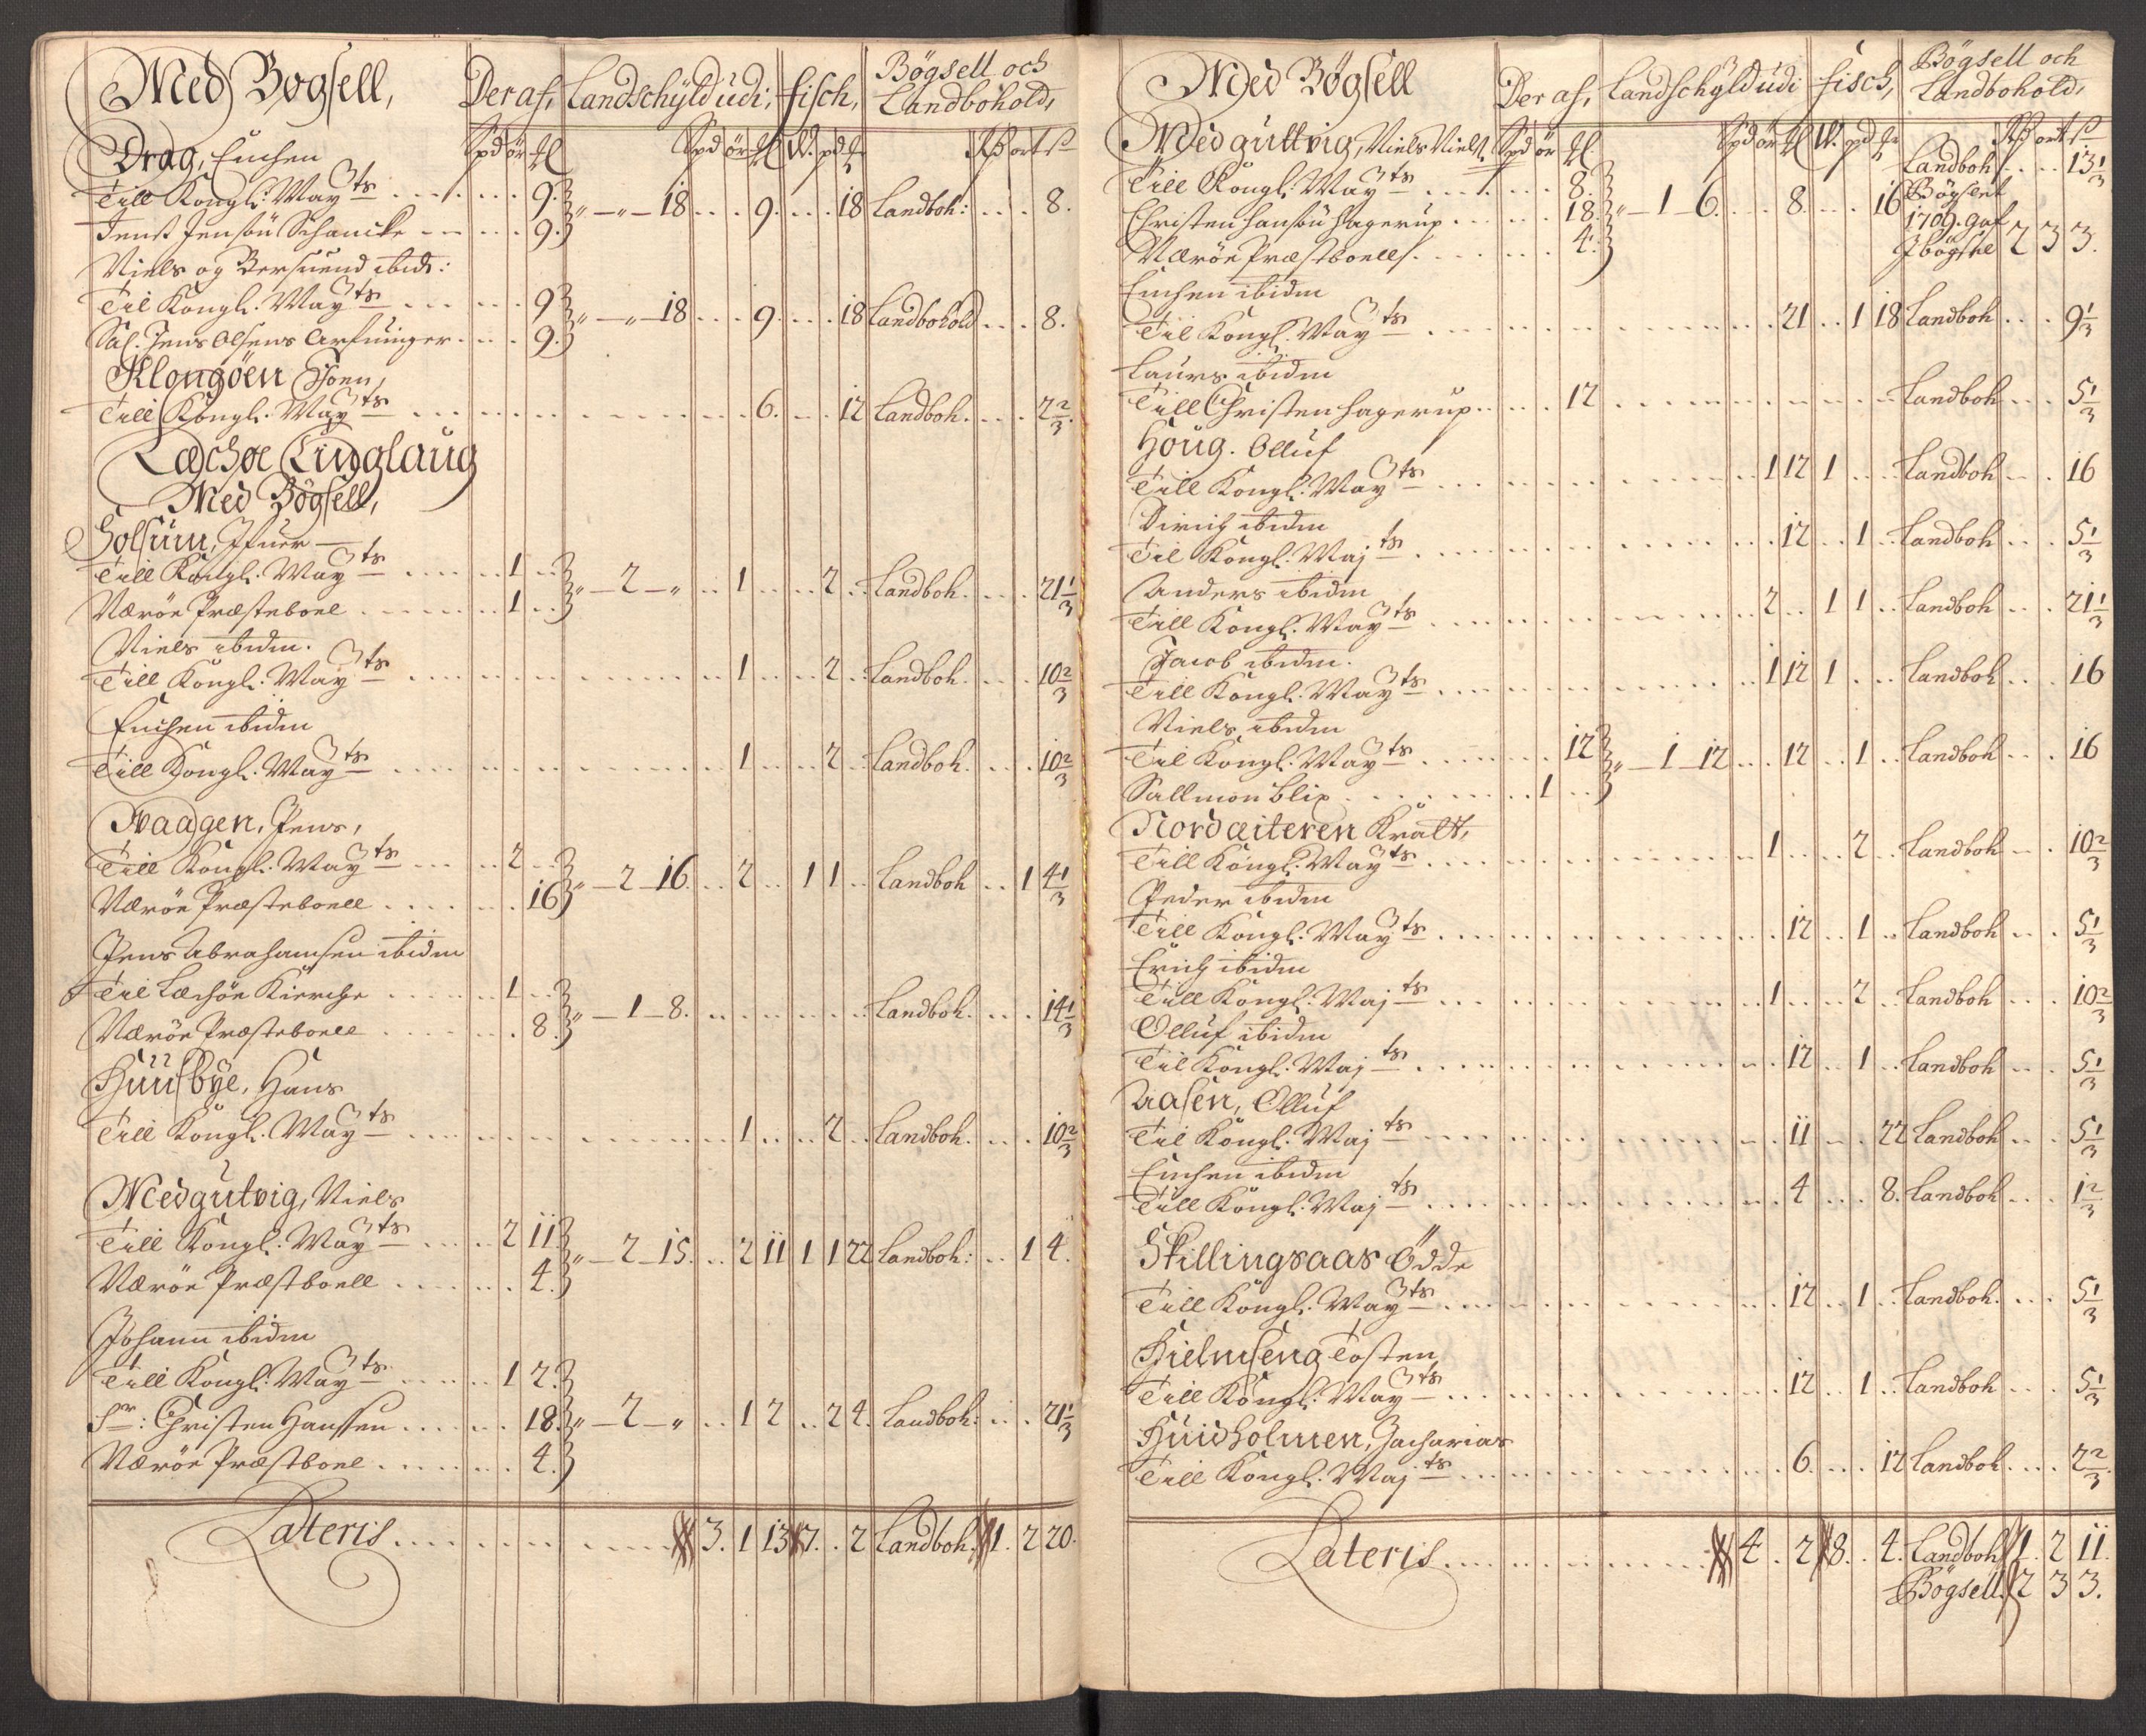 Med Bogsell, Der af, Landschyld udi, fisch, Bögsell och Landbohold,
Spd ör fl Spd ör fl W. pd fr Rß ort ß
Drag, Enchen
Till Kongl: Mayts 9. „ — „ — 18 9. 18 Landboh: 8.
Jens Jensön Schancke 9.
Niels og Bersuend ibid:
Til Kongl. Mayts 9 „ — „ — 18 9. 18 Landbohold 8.
Sal. Jens Olsens Arfuinger 9.
Klongöen Joen,
Till Kongl. Mayts 6. 12 Landboh. 2 2/3.
Lechöe Tinglaug
Med Bögsell,
Solsum, Ifuer
Till Kongl. Mayts 1 „ — 2 — „ 1 2 Landboh. 21 1/3
Værön Præsteboel 1
Niels ibidm.
Till Kongl. Mayts 1 2 Landboh. 10 2/3
Enchen ibidm
Till Kongl. Mayts 1 2 Landboh. 10 2/3
Haagen, Jens,
Till Kongl. Mayts 2 „ — 2 — 16. 2 1 1 Landboh 1 4 1/3
Værön Præsteboell 16
Jens Abrahamsen ibidm
Til Lechön Kierche 1 „ — 1 — 8. Landboh. 14 1/3
Værön Præsteboell 8.
Huusbye, Hans
Till Kongl. Mayts 1 2 Landboh. 10 2/3
Medgutvig, Niels
Till Kongl. Mayts 2 11. „ — 2 — 15. 2 11 1 1 22 Landboh: 1 4.
Værön Præstboell 4.
Johann ibidm
Till Kongl. Mayts 1 2.
Sr: Christen Hanssen 18. „ — 2 — „ 1 2 2 4. Landboh: 21 1/3
Værön Præstboel 4.
Lateris 3. 1 13 7. 2 Landboh. 1. 2 20.
Med Bögsell Der af, Landschyld udi fisch, Bögsell och Landbohold,
Spd ör fl Spd ör fl W. pd fr Rß ort ß
Medguttvig, Niels Niels.
Landboh 13 1/3
Till Kongl: Mayts 8. „ — 1 — 6. 8. 16 Bögslet
Christen Hansön Hagerup 18. 1709. gaf
Værön Præstboell 4. 2 3 3.
Enchen ibidm
Til Kongl. Mayts 21 1 18 Landboh 9 1/3
Laurs ibidm
Till Christen Hagerup 12 Landboh 5 1/3
Houg. Olluf
Till Kongl. Mayts 1 12 1 Landboh 16
Dirich ibidm
Til Kongl. Majts 12 1 Landboh 5 1/3
Anders ibidm
Till Kongl. Mayts 2 1 1 Landboh 21 1/3
Jacob ibidm.
Till Kongl. Mayts 1 12 1 Landboh 16
Niels ibidm
Til Kongl. Mayts 12 „ — 1 — 12 12 1 Landboh 16
Sallmon Blix 1
Nordæiteren Kralt,
Till Kongl. Mayts 1 2 Landboh 10 2/3
Peder ibidm
Till Kongl. Mayts 12 1 Landboh 5 1/3
Erich ibidm
Till Kongl. Majts 1 2 Landboh 10 2/3
Olluf ibidm
Til Kongl. Majts 12 1 Landboh 5 1/3
Aasen, Olluf
Til Kongl. Majts 11 22 Landboh 5 1/3
Enchen ibidm
Till Kongl. Majts 4 8. Landboh 1 2/3
Skillingsaas Ödde
Till Kongl. Mayts 12 1 Landboh. 5 1/3
Hielmseng Tosten,
Till Kongl. Mayts 12 1 Landboh 5 1/3
Huidholmen, Zacharias
Till Kongl. Majts 6. 12 Landboh 2 2/3.
Lateris 4. 2 8. 4. Landboh 1. 2 11.
Bögsell 2 3 3.